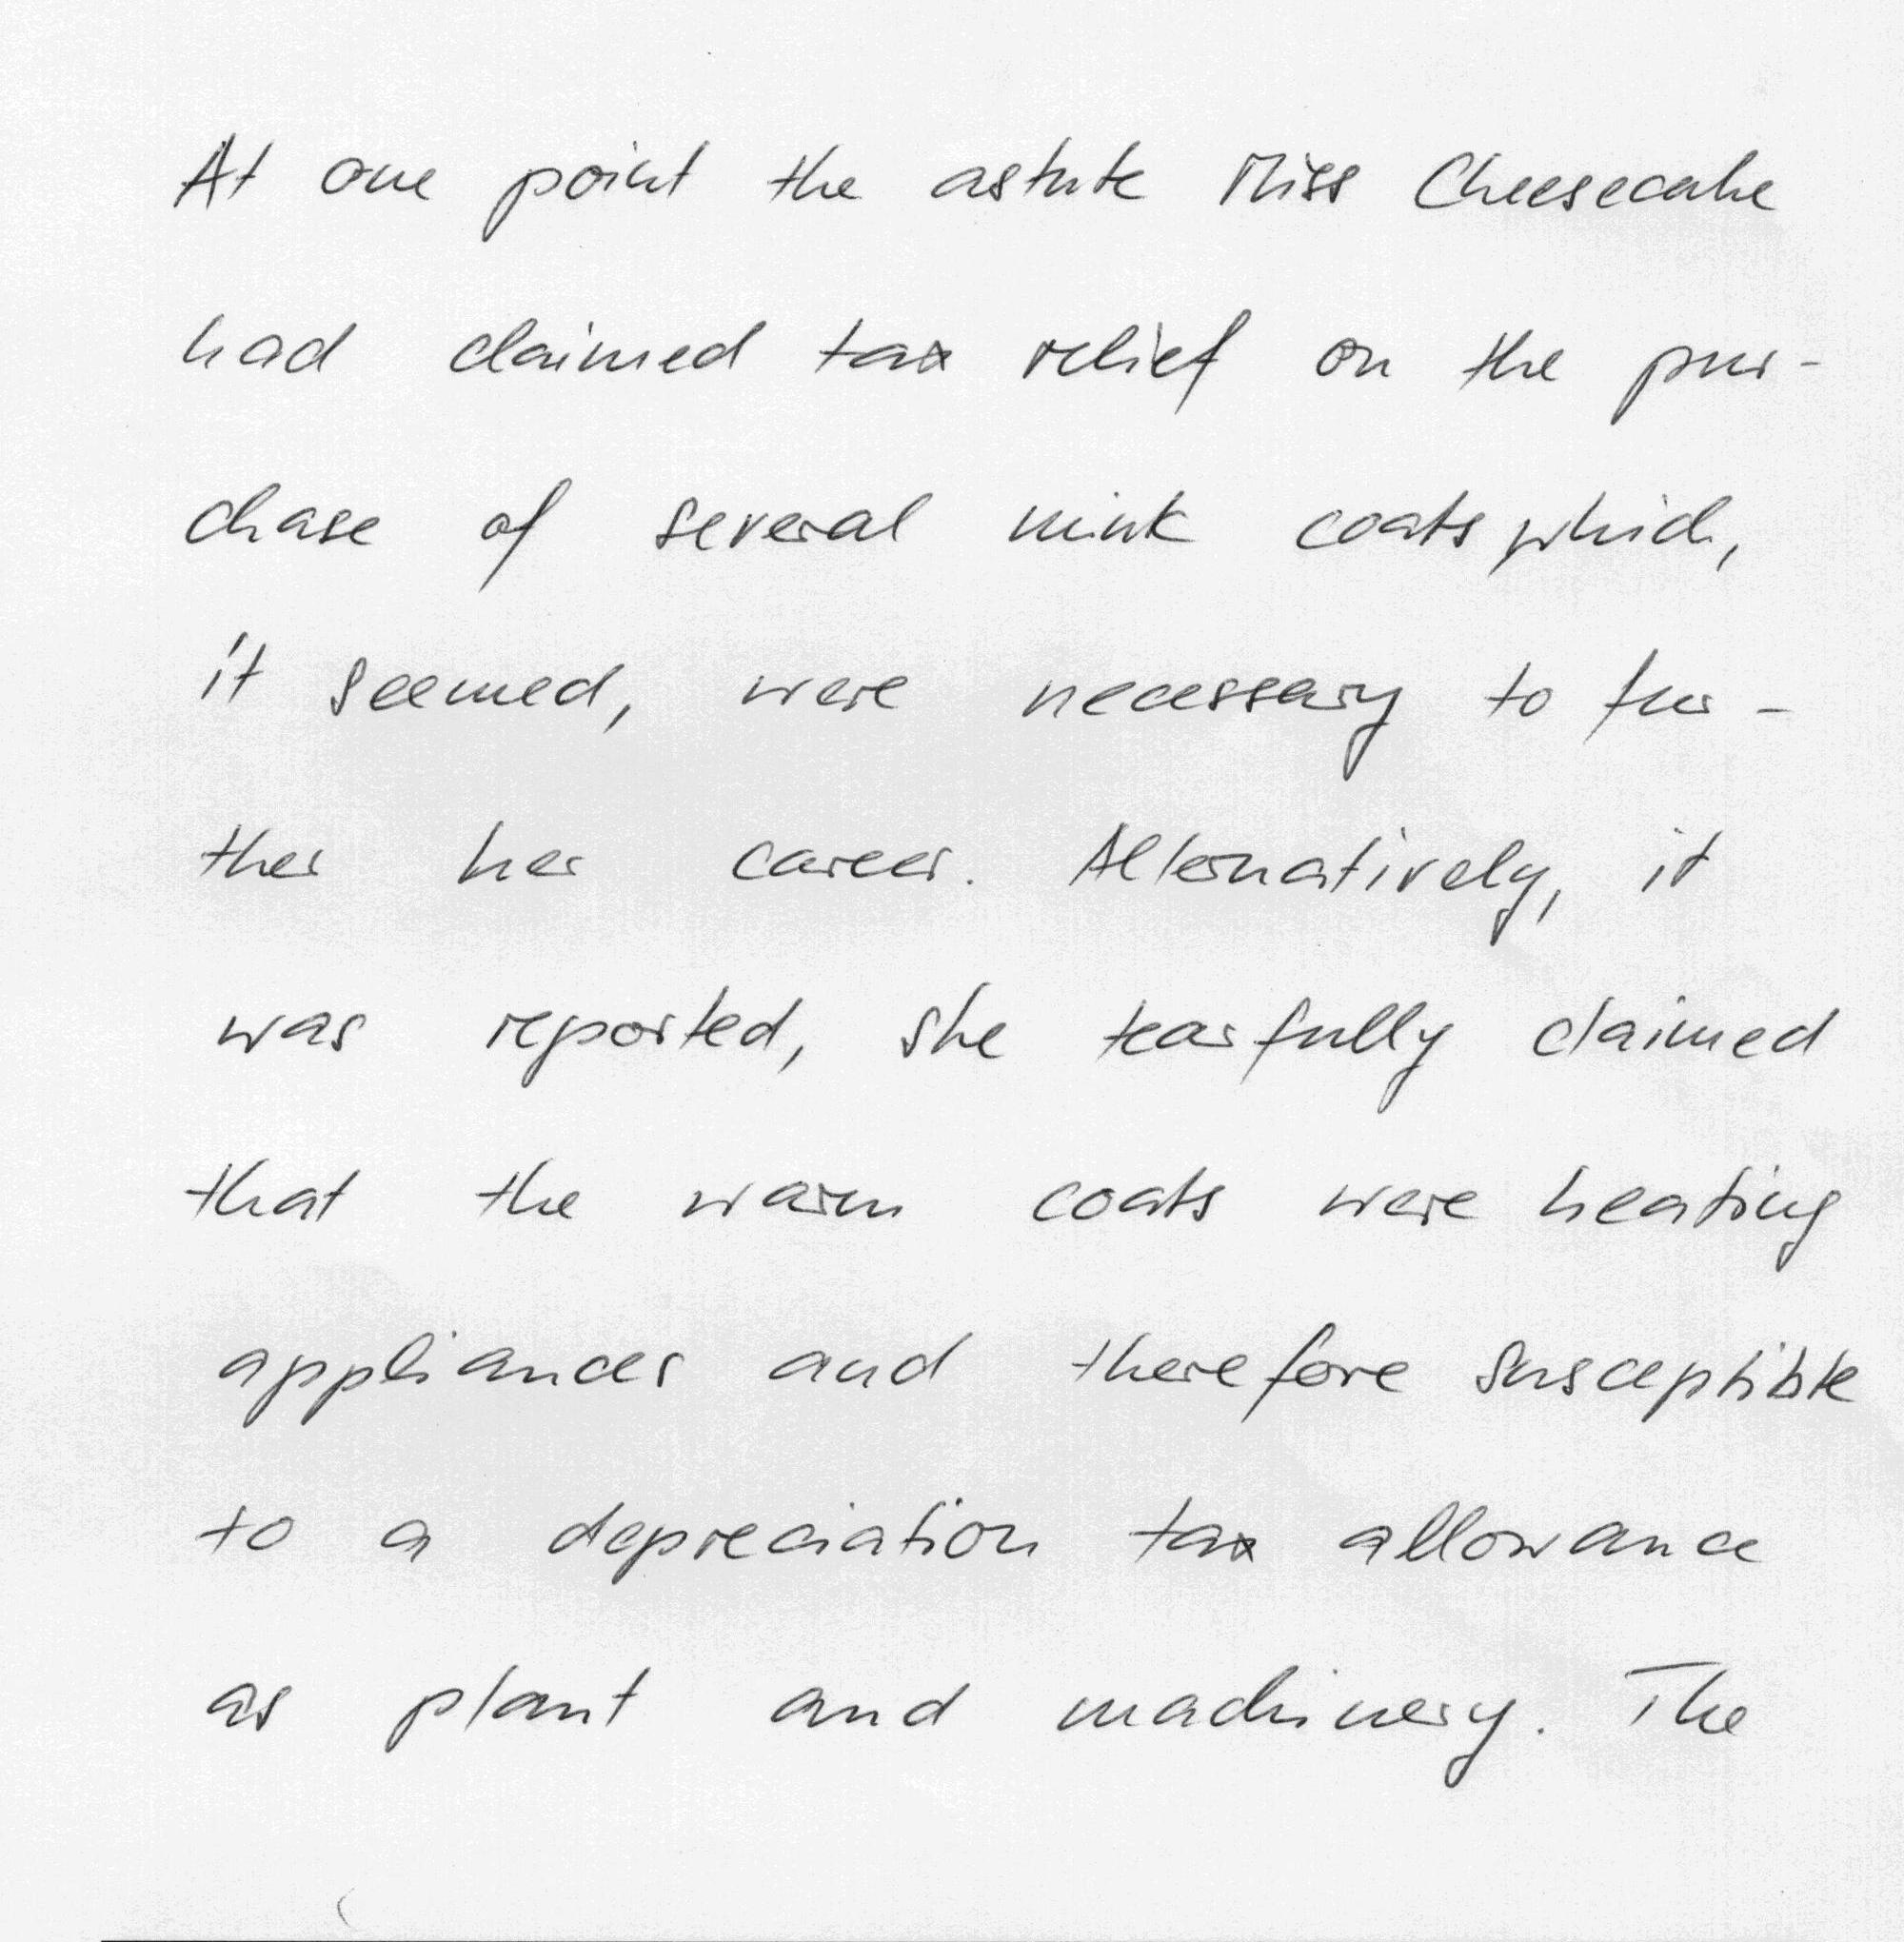 At one point the astute Miss Cheesecake
had claimed tax relief on the pur-
chase of several mink coats, which,
it seemed, were necessary to fur-
ther her career. Alternatively, it
was reported, she tearfully claimed
that the warm coats were heating
appliances and therefore susceptible
to a depreciation tax allowance
as plant and machinery. The